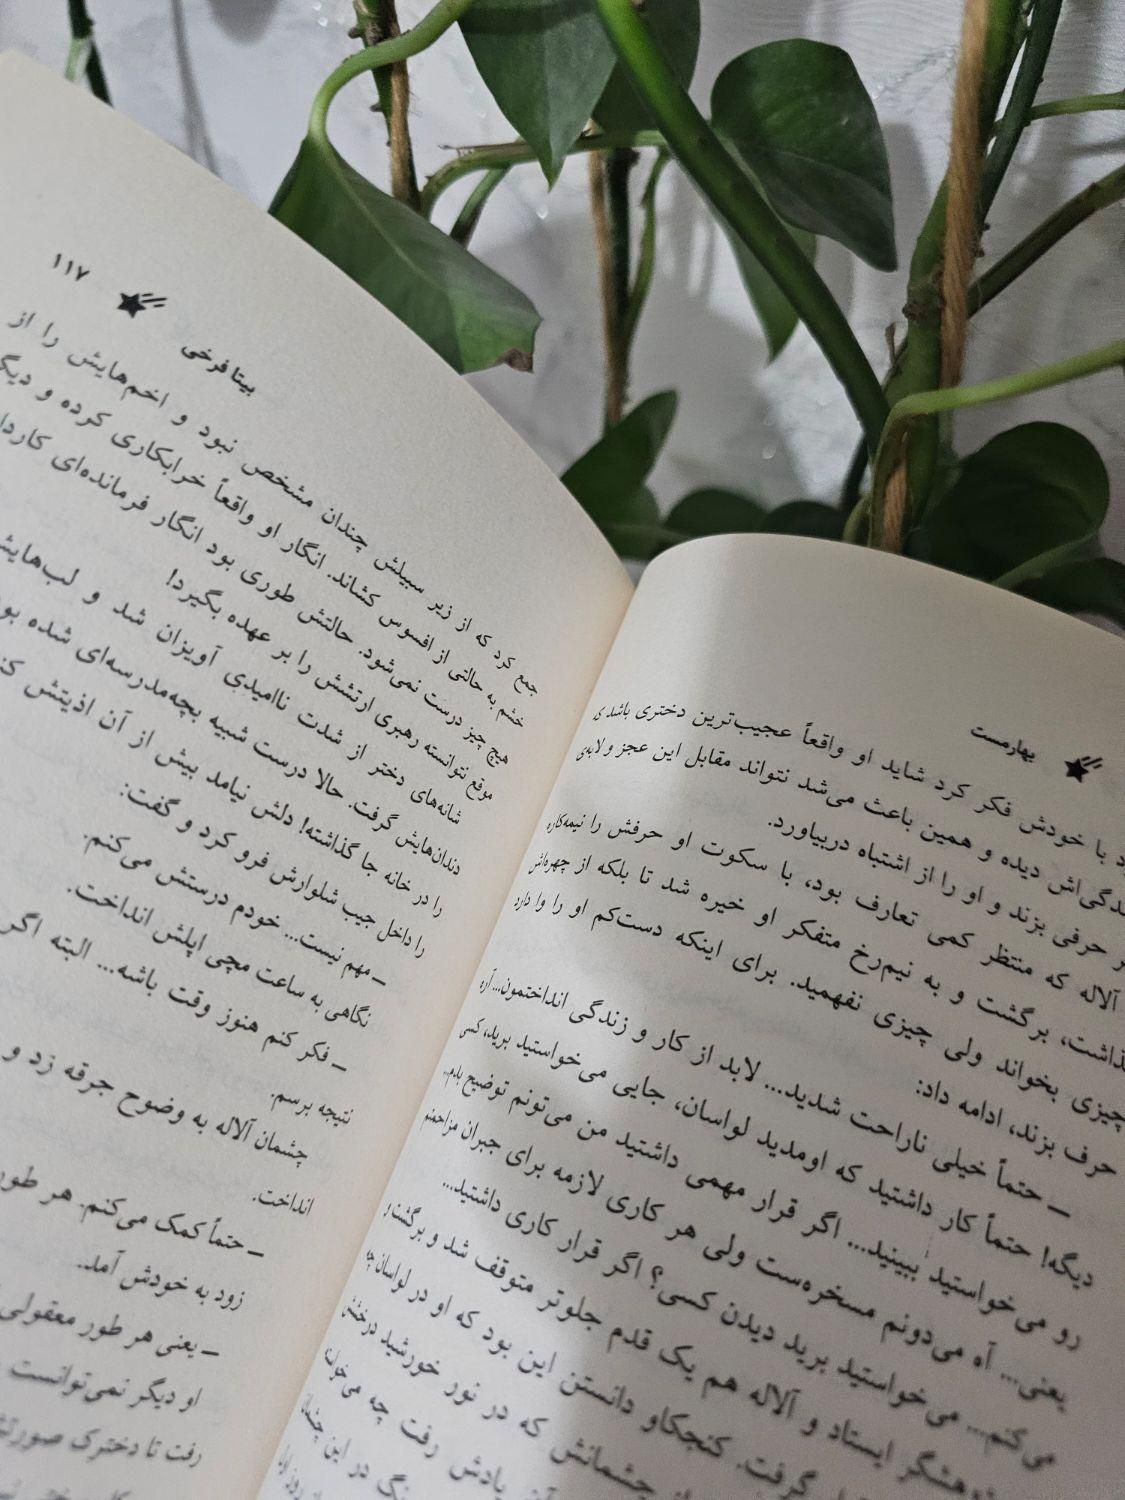 بهارمست
با خودش فکر کرد شاید او واقعاً عجیب‌ترین دختری باشد که
دیده و همین باعث می‌شد نتواند مقابل این عجز و لابه‌ی
حرفی بزند و او را از اشتباه دربیاورد.
آلاله که منتظر کمی تعارف بود، با سکوت او حرفش را نیمه‌کاره
برگشت و به نیم‌رخ متفکر او خیره شد تا بلکه از چهره‌اش
چیزی بخواند ولی چیزی نفهمید. برای اینکه دست‌کم او را وا دارد
حرف بزند، ادامه داد:
ـ حتماً خیلی ناراحت شدید... لابد از کار و زندگی انداختمون... آره
دیگه! حتماً کار داشتید که اومدید لواسان، جایی می‌خواستید برید، کسی
رو می‌خواستید ببینید... اگر قرار مهمی داشتید من می‌تونم توضیح بدم...
یعنی... آه می‌دونم مسخره‌ست ولی هر کاری لازمه برای جبران مزاحمتم
می‌کنم... می‌خواستید برید دیدن کسی؟ اگر قرار کاری داشتید...
ایستاد و آلاله هم یک قدم جلوتر متوقف شد و برگشت و
گرفت. کنجکاو دانستن این بود که او در لواسان چه
چشمانش که در نور خورشید درخشش
یادش رفت چه می‌خواند
در این چشمان
۱۱۷
بیتا فرخی
جمع کرد که از زیر سبیلش چندان مشخص نبود و اخم‌هایش را از
خشم به حالتی از افسوس کشاند. انگار او واقعاً خرابکاری کرده و
هیچ چیز درست نمی‌شود. حالتش طوری بود انگار فرمانده‌ای
موقع نتوانسته رهبری ارتشش را بر عهده بگیرد!
شانه‌های دختر از شدت ناامیدی آویزان شد و
دندان‌هایش گرفت. حالا درست شبیه بچه‌مدرسه‌ای شده
را در خانه جا گذاشته! دلش نیامد بیش از آن اذیتش
را داخل جیب شلوارش فرو کرد و گفت:
ـ مهم نیست... خودم درستش می‌کنم.
نگاهی به ساعت مچی اپلش انداخت.
ـ فکر کنم هنوز وقت باشه... البته اگر
نتیجه برسم.
چشمان آلاله به وضوح جرقه زد و
انداخت.
ـ حتماً کمک می‌کنم. هر طور
زود به خودش آمد.
ـ یعنی هر طور معقولی
او دیگر نمی‌توانست
رفت تا دخترک